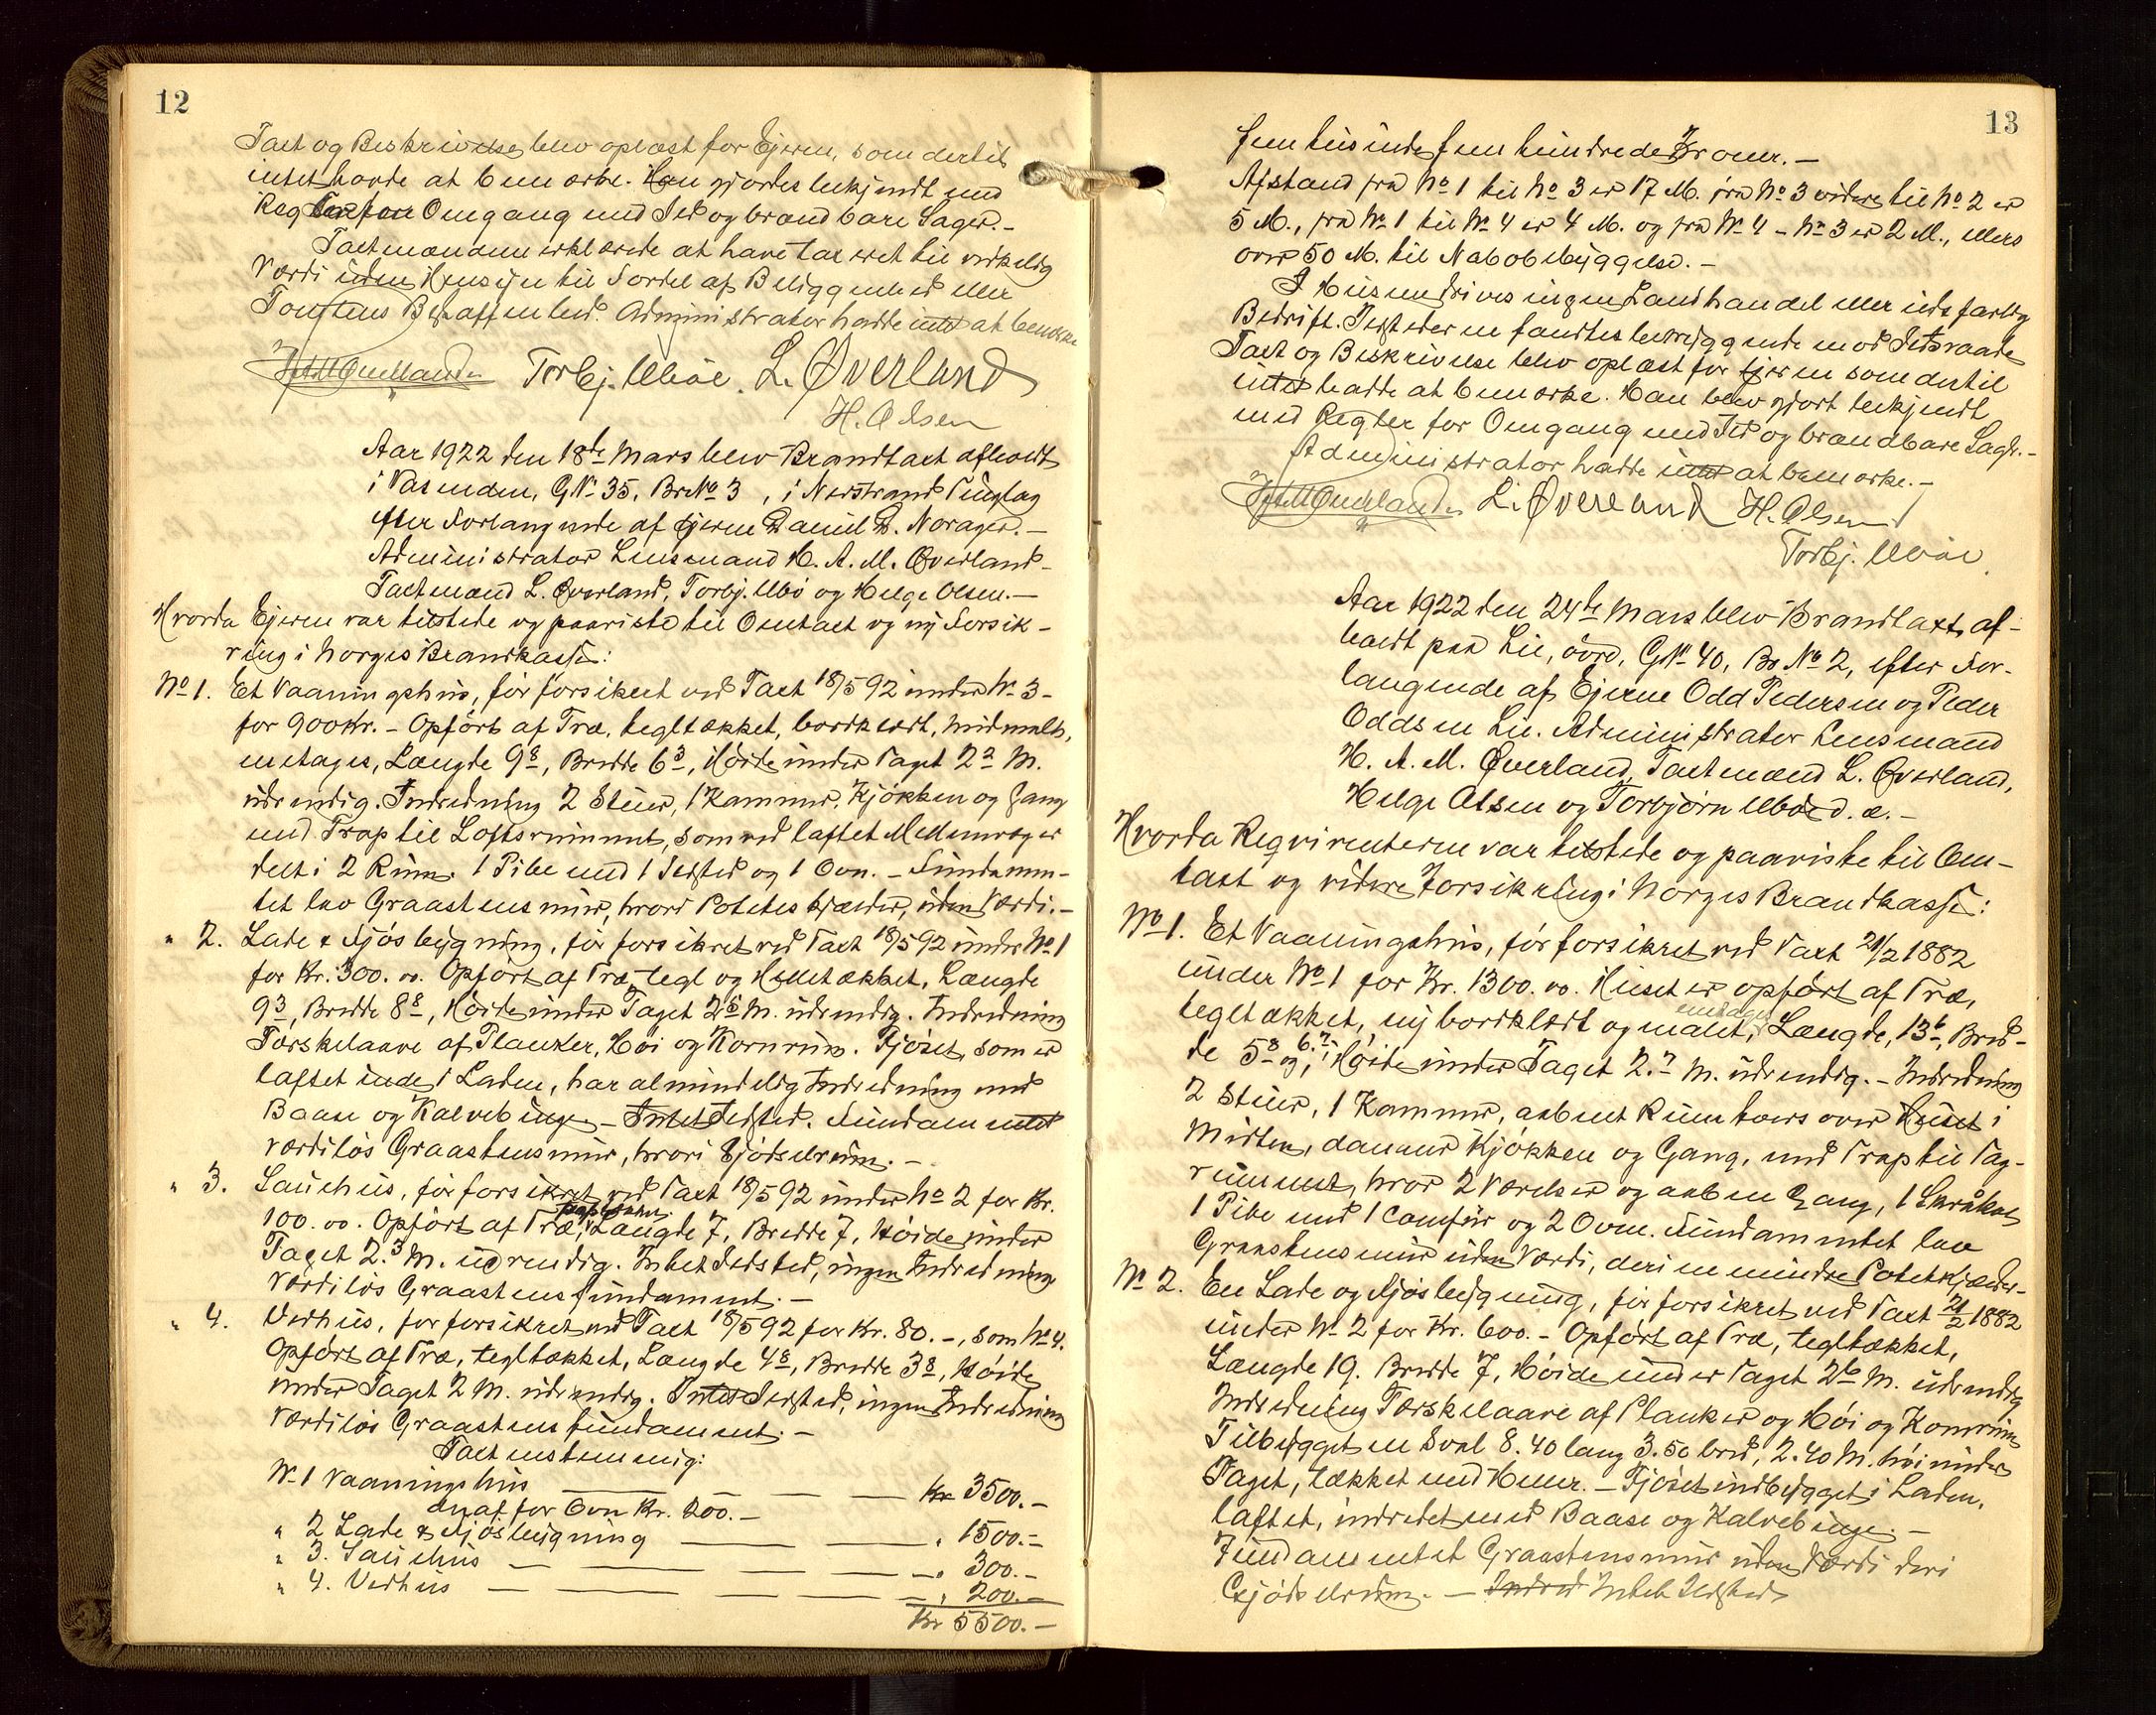 12
Taxt og Beskrivelse blev oplæst for Ejeren, som dertil
intet havde at bemærke. Han gjordes bekjendt med
Regler for Omgang med Ild og brandbare Sager.-
Taxtmændene erklærede at have taxeret til virkelig
Værdi uden Hensyn til Fordel af Beliggenhed eller
Tomtens Beskaffenhed. Administrator hadde intet at bemærke
Torbj. Ubøe. L. Øverland
H. Olsen
Aar 1922 den 18de Mars blev Brandtaxt afholdt
i Vasenden, GNr 35, BrNo 3, i Nerstrand Tinglag
efter Forlangende af Ejeren Daniel D. Norager.-
Administrator Lensmand H. A. M. Øverland-
Taxtmænd L. Øverland, Torbj. Ubø og Helge Olsen.-
Hvorda Ejeren var tilstede og paaviste til Omtaxt og ny Forsik-
ring i Norges Brandkasse:
No 1. Et Vaaningshus, før forsikret ved Taxt 18/5 92 under No 3-
for 900 Kr.- Opført af Træ, tegltækket, bordklædt, hvidmalt,
en etages, Længde 9 8, Bredde 6 3, Høide under Taget 2 2 M.
udvendig. Indredning 2 Stuer, 1 Kammer, Kjøkken og Gang
med Trap til Loftsrummet, som ved laftet Mellemvæg er
delt i 2 Rum. 1 Pibe med 1 Ildsted og 1 Ovn.- Fundamen-
tet lav Graastensmur, hvori Poteteskjælder, uden Værdi.-
" 2. Lade & Fjøsbygning, før forsikret ved Taxt 18/5 92 under No 1
for Kr. 300.00. Opført af Træ, tegl og Helletækket, Længde
9 3, Bredde 8 8, Høide under Taget 2 5 M. udvendig. Indredning
Tærskelaave af Planker, Høi og Kornrum. Fjøset, som er
laftet inde i Laden, har almindelig Indredning med
Baase og Kalvebinge.- Intet Ildsted. Fundamentet
værdiløs Graastensmur, hvori Gjødselrum.-
" 3. Sauehus, før forsikret ved Taxt 18/5 92 under No 2 for Kr.
100.00. Opført af Træ, Længde 7, Bredde 7, Høide under
Taget 2.3 M. udvendig. Intet Ildsted, ingen Indredning
Værdiløs Graastensfundament.-
" 4. Vedhus, før forsikret ved Taxt 18/5 92 for Kr. 80.-, som No 4.
Opført af Træ, tegltækket, Længde 4 8, Bredde 3 8, Høide
under Taget 2 M. udvendig. Intet Ildsted, ingen Indredning
Værdiløs Graastensfundament.-
Taxtenstemmig:
No 1 Vaaningshus Kr 3500.-
deraf for Ovn Kr. 200.-
" 2 Lade & Fjøsbygning " 1500.-
" 3. Sauehus " 300.-
" 4. Vedhus " 200.-
Kr 5500.-
13
Fem tusinde fem hundrede Kroner.-
Afstand fra No 1 til No 3 er 17 M. fra No 3 videre til No 2 er
5 M., fra No 1 til No 4 er 4 M. og fra No 4 - No 3 er 2 M., ellers
over 50 M. til Nabobebyggelse.-
I Husene drives ingen Landhandel eller ildsfarlig
Bedrift. Ildstederne fandtes betryggende mod Ildsvaade
Taxt og Beskrivelse blev oplæst for Ejeren som dertil
intet hadde at bemærke. Han blev gjort bekjendt
med Regler for Omgang med Ild og brandbare Sager.-
Administrator hadde intet at bemærke.-
L. Øverland H. Olsen
Torbj. Ubøe.
Aar 1922 den 24de Mars blev Brandtaxt af-
holdt paa Lie, øvre, GNr 40, Br No 2, efter For-
langende af Ejerne Odd Pedersen og Peder
Oddsen Lie. Administrator Lensmand
H. A. M. Øverland, Taxtmænd L. Øverland,
Helge Olsen og Torbjørn Ubø d. æ.-
Hvorda Reqvirenterne var tilstede og paaviste til Om-
taxt og videre Forsikring i Norges Brandkasse:
No 1. Et Vaaningshus, før forsikret ved Taxt 21/2 1882
under No 1 for Kr. 1300.00. Huset er opført af Træ,
tegltækket, ny bordklædt og malet, enetages Længde, 13 6, Bred-
de 5 8 og 6.7, Høide under Taget 2.7 M. udvendig.- Indredning
2 Stuer, 1 Kammer, aabent Rum tvers over Huset i
Midten, dannet Kjøkken og Gang, med Trap til Tag-
rummet, hvor 2 Værelser og aaben Gang, 1 Skråkot
1 Pibe med 1 Comfur og 2 Ovne. Fundamentet lav
Graastensmur uden Værdi, deri en mindre Potetkjælder-
No 2. En Lade og Fjøsbygning, før forsikret ved Taxt 21/2 1882
under No 2 for Kr. 600.- Opført af Træ, tegltækket,
Længde 19. Bredde 7, Høide under Taget 2 6 M. udvendig
Indredning Tærskelaave af Planker og Høi og Kornrum
Tilbygget en Sval 8.40 lang 3.50 bred, 2.40 M. høi under
Taget, tækket med Heller.- Fjøset indbygget i Laden,
laftet, indredet med Baase og Kalvebinge.-
Fundamentet Graastensmur uden Værdi deri
Gjødselrum.- Indred Intet Ildsted